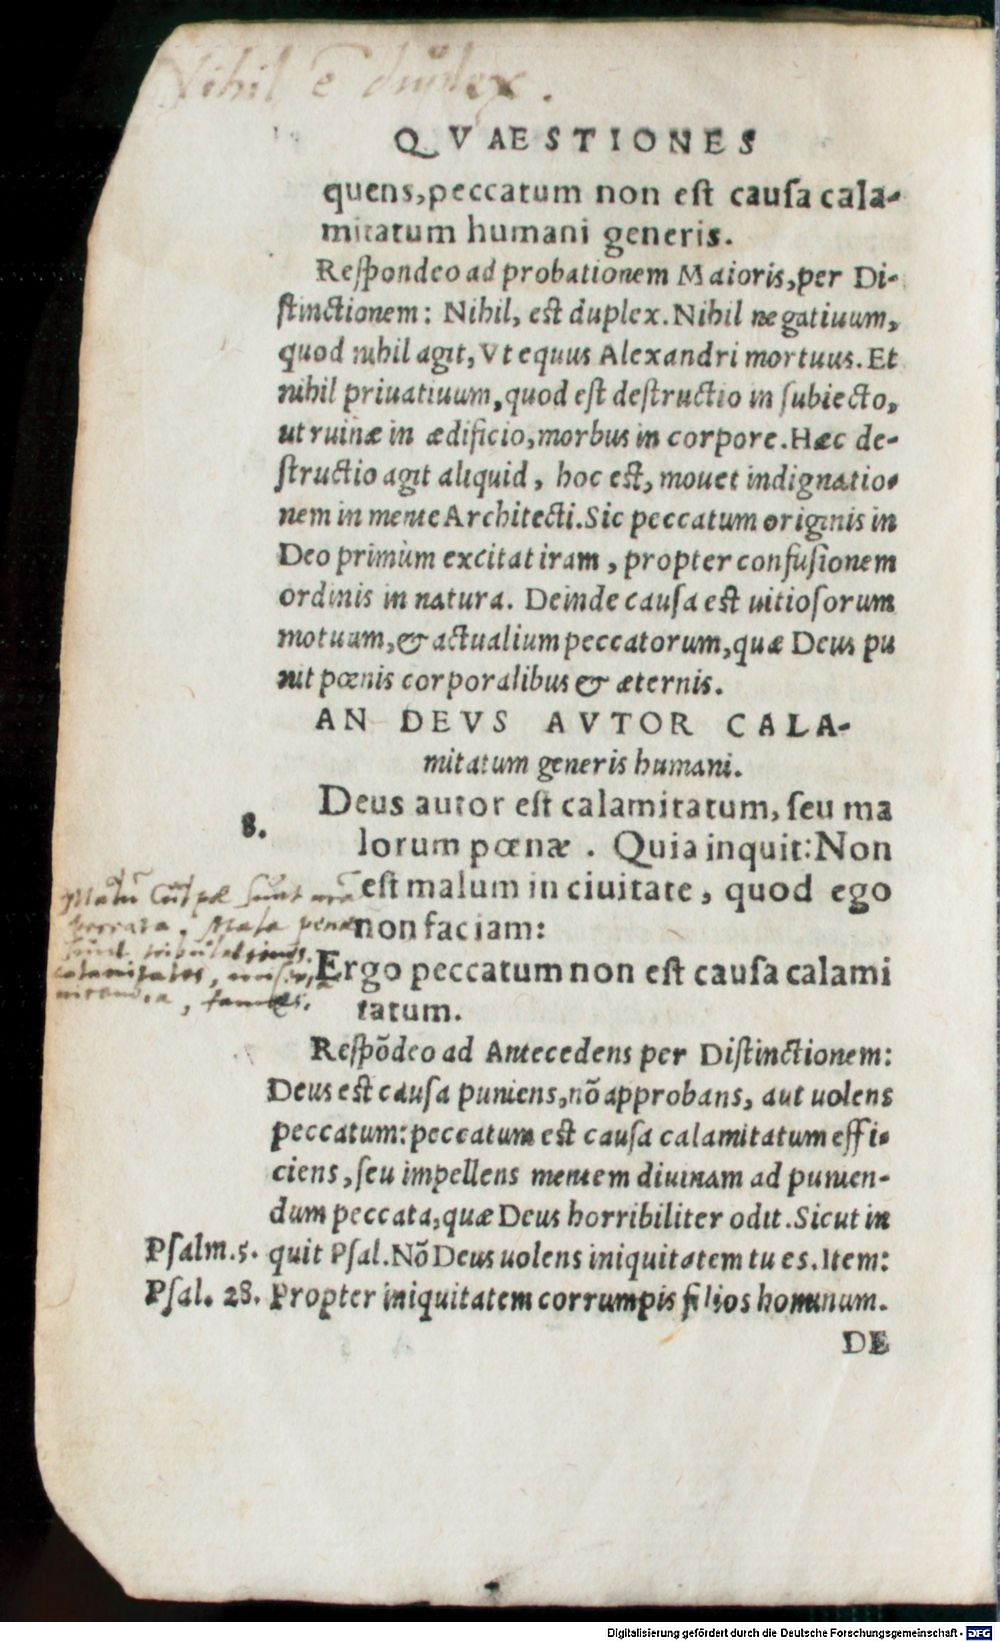 Nihil ē duplex.
QVAESTIONES
quens, peccatum non est causa cala-
mitatum humani generis.
Respondeo ad probationem Maioris, per Di-
stinctionem: Nihil, est duplex. Nihil negatiuum,
quod nihil agit, Vt equus Alexandri mortuus. Et
nihil priuatiuum, quod est destructio in subiecto,
ut ruinæ in ædificio, morbus in corpore. Hæc de-
structio agit aliquid, hoc est, mouet indignatio-
nem in mente Architecti. Sic peccatum originis in
Deo primùm excitat iram, propter confusionem
ordinis in natura. Deinde causa est uitiosorum
motuum, & actualium peccatorum, quæ Deus pu
nit pœnis corporalibus & æternis.
AN DEVS AVTOR CALA-
mitatum generis humani.
8.
Deus autor est calamitatum, seu ma
lorum pœnæ. Quia inquit: Non
est malum in ciuitate, quod ego
non faciam:
Ergo peccatum non est causa calami
tatum.
sunt
peccata. Mala pene
sunt tribulationes,
calamitates,
fames.
Respōdeo ad Antecedens per Distinctionem:
Deus est causa puniens, nō approbans, aut uolens
peccatum: peccatum est causa calamitatum effi-
ciens, seu impellens mentem diuinam ad punien-
dum peccata, quæ Deus horribiliter odit. Sicut in
Psalm. 5. quit Psal. Nō Deus uolens iniquitatem tu es. Item:
Psal. 28. Propter iniquitatem corrumpis filios hominum.
DE
Digitalisierung gefördert durch die Deutsche Forschungsgemeinschaft - DFG